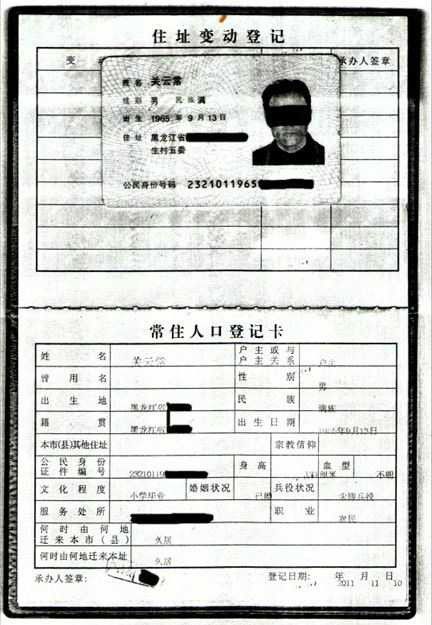 住址变动登记
变 承办人签章
姓名 关云常
性别 男 民族 满
出生 1965 年 9 月 13 日
住址 黑龙江省
生村五委
公民身份号码 2321011965
常住人口登记卡
姓名 户主或与户主关系 户主
曾用名 性别 男
出生地 黑龙江省 民族 满族
籍贯 黑龙江省 出生日期 年9月13日
本市(县)其他住址 宗教信仰
公民身份证件编号 23210119 身高 血型 不明
文化程度 小学毕业 婚姻状况 已婚 兵役状况
服务处所 职业 农民
何时由何地迁来本市(县) 久居
何时由何地迁来本址 久居
承办人签章: 登记日期: 年 月 日
2011 11 10